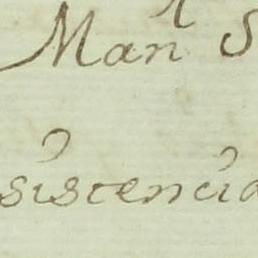 Man^l S
sistencia